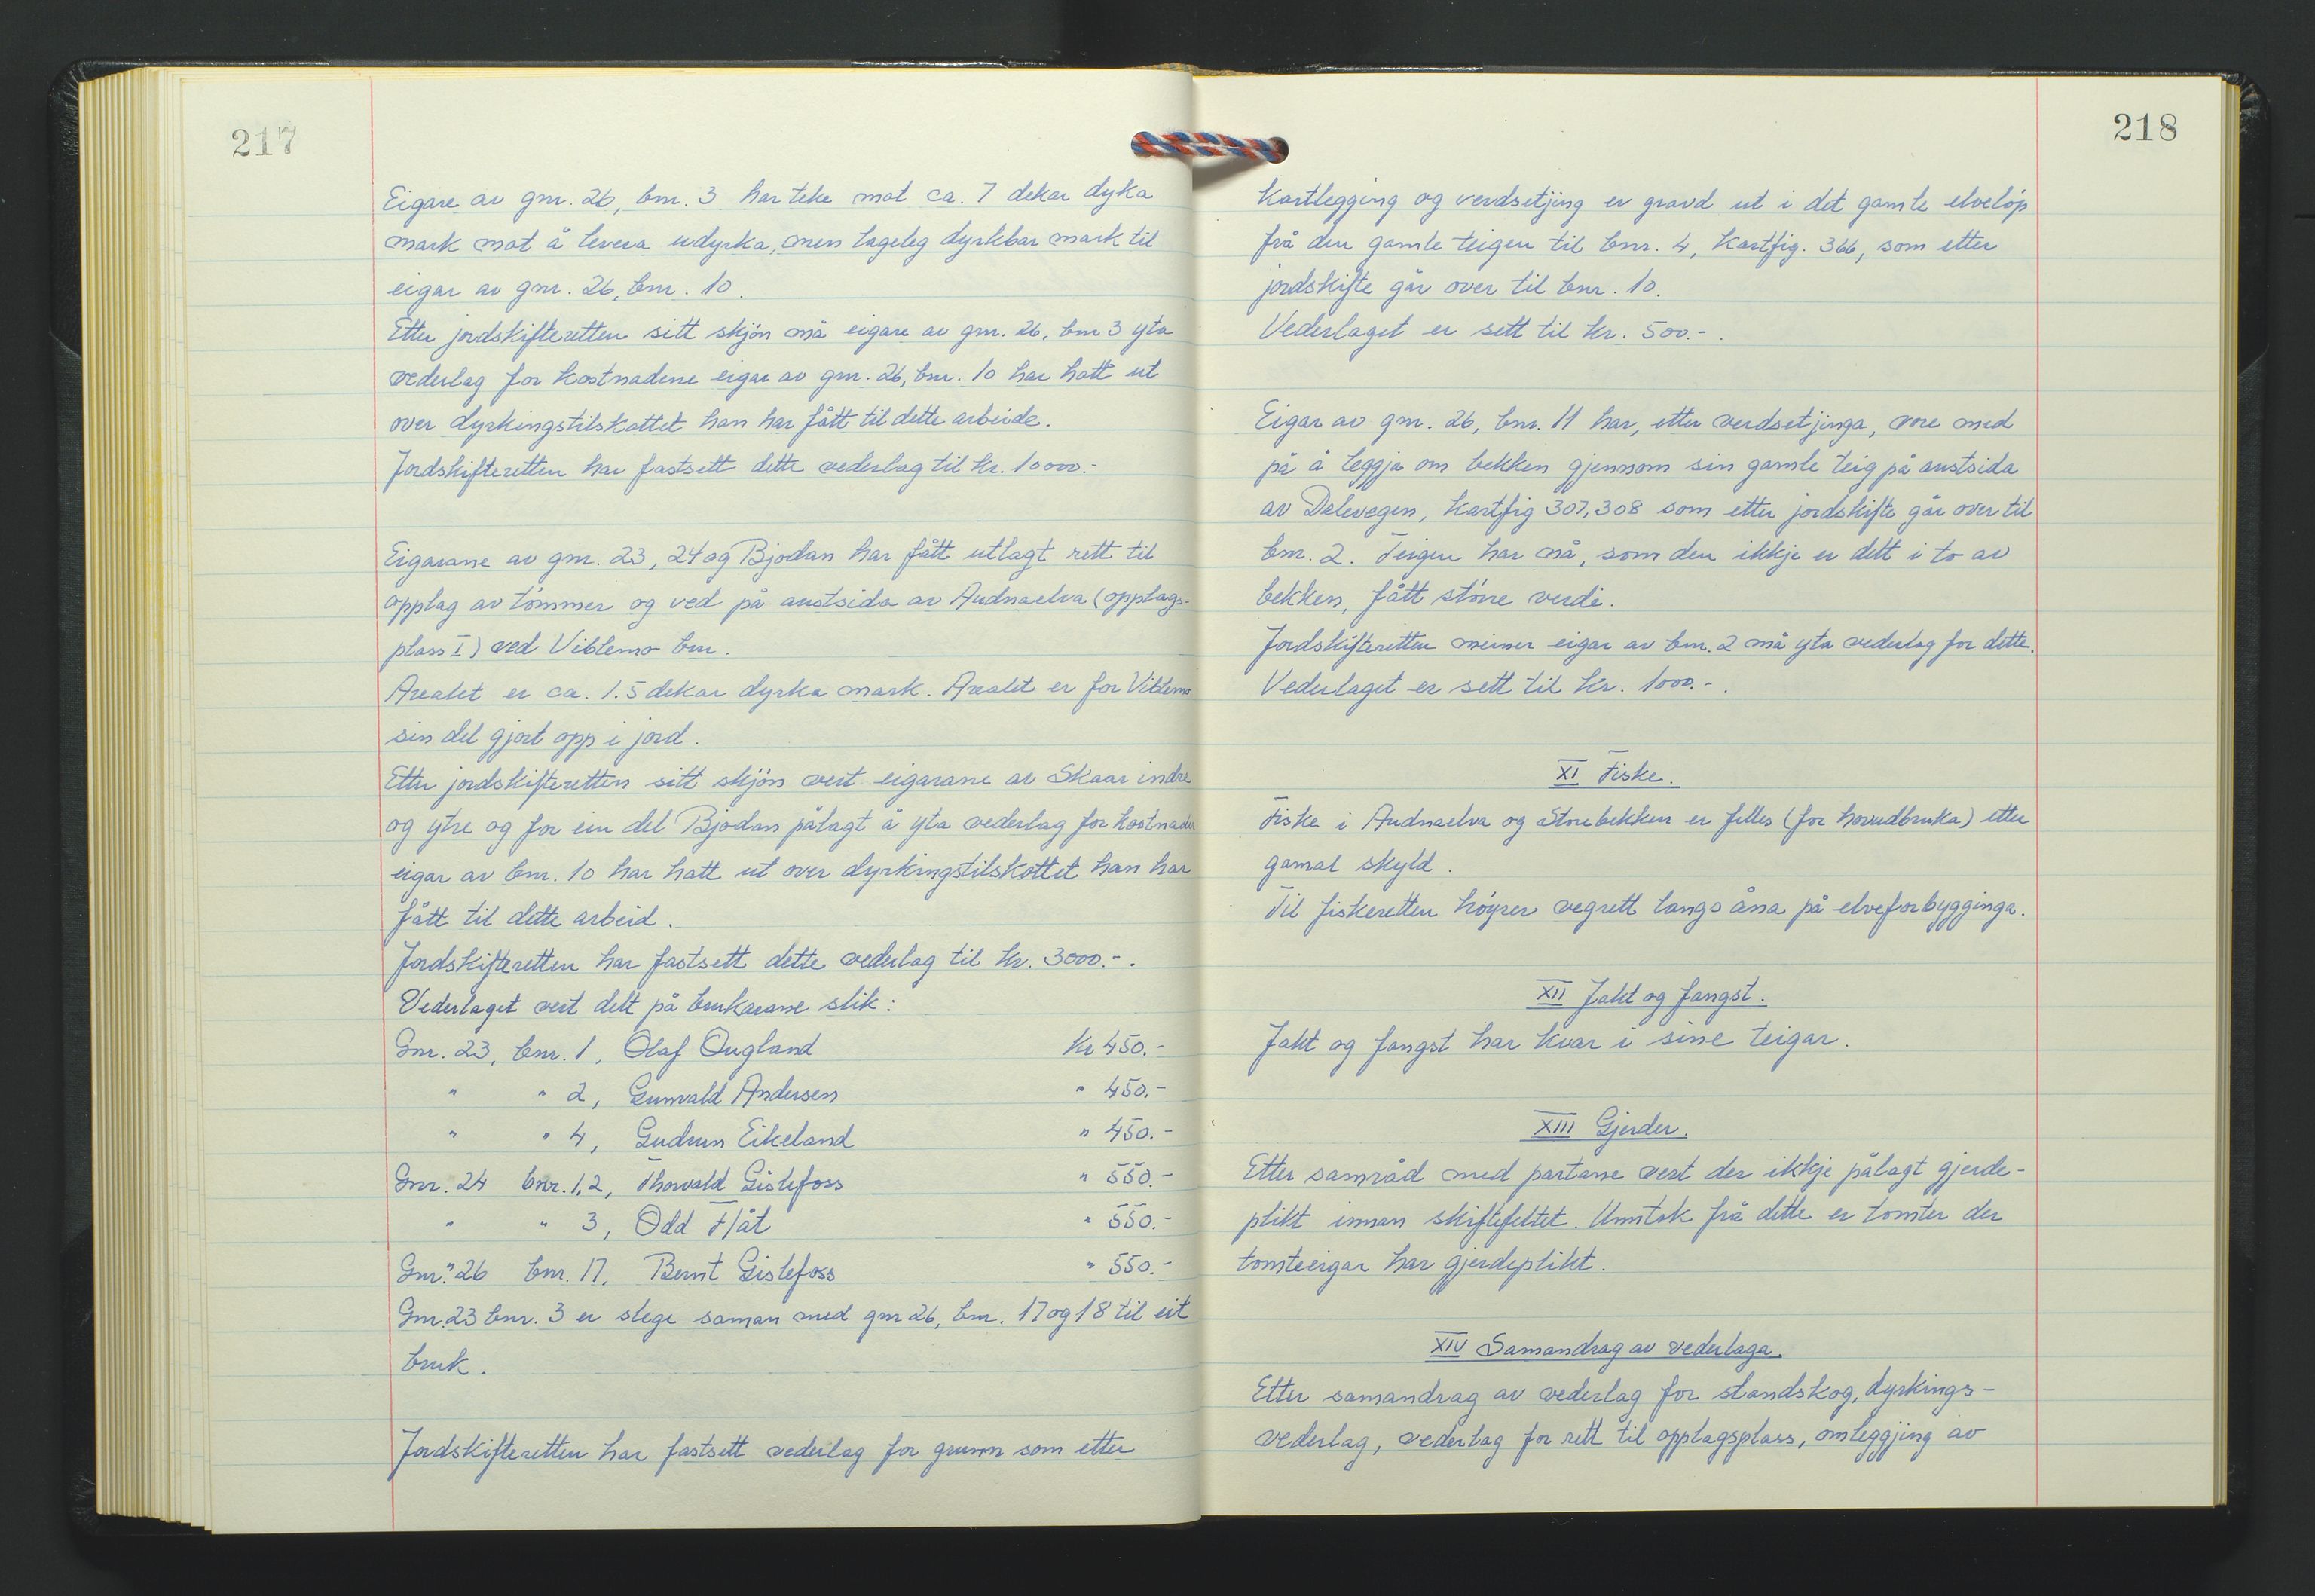 217
Eigare av gnr. 26, bnr. 3 har teke mot ca. 7 dekar dyka
mark mot å levera udyrka, men lageleg dyrkbar mark til
eigar av gnr. 26, bnr. 10.
Etter jordskifteretten sitt skjøn må eigare av gnr. 26, bnr 3 yta
vederlag for kostnadene eigar av gnr. 26, bnr. 10 har hatt ut
over dyrkingstilskottet han har fått til dette arbeide.
Jordskifteretten har fastsett dette vederlag til kr. 10000.-
Eigarane av gnr. 23, 24 og Bjodan har fått utlagt rett til
opplag av tømmer og ved på austsida av Audnaelva (opplags-
plass I) ved Viblemo bru.
Arealet er ca. 1.5 dekar dyrka mark. Arealet er for Viblemo
sin del gjort opp i jord.
Etter jordskifteretten sitt skjøn vert eigarane av Skaar indre
og ytre og for ein del Bjodan pålagt å yta vederlag for kostnader
eigar av bnr. 10 har hatt ut over dyrkingstilskottet han har
fått til dette arbeid.
Jordskifteretten har fastsett dette vederlag til kr. 3000.-.
Vederlaget vert delt på brukarane slik:
Gnr. 23, bnr. 1, Olaf Ougland Kr 450.-
" " 2, Gunvald Andersen " 450.-
" " 4, Gudrun Eikeland " 450.-
Gnr. 24 bnr. 1,2, Thorvald Gislefoss " 550.-
" " 3, Odd Flåt " 550.-
Gnr. 26 bnr. 17, Bernt Gislefoss " 550.-
Gnr. 23 bnr. 3 er slege saman med gnr 26, bnr. 17 og 18 til eit
bruk.
Jordskifteretten har fastsett vederlag for grunn som etter
218
kartlegging og verdsetjing er gravd ut i det gamle elveløp
frå den gamle teigen til bnr. 4, kartfig. 366, som etter
jordskifte går over til bnr. 10.
Vederlaget er sett til kr. 500.-.
Eigar av gnr. 26, bnr. 11 har, etter verdsetjinga, vore med
på å leggja om bekken gjennom sin gamle teig på austsida
av Delevegen, kartfig 307, 308 som etter jordskifte går over til
bnr. 2. Teigen har nå, som den ikkje er delt i to av
bekken, fått større verdi.
Jordskifteretten meiner eigar av bnr. 2 må yta vederlag for dette.
Vederlaget er sett til kr. 1000.-.
XI Fiske.
Fiske i Audnaelva og Storebekken er felles (for hovudbruka) etter
gamal skyld.
Til fiskeretten høyrer vegrett langs åna på elveforbygginga.
XII Jakt og fangst.
Jakt og fangst har kvar i sine teigar.
XIII Gjerder.
Etter samråd med partane vert der ikkje pålagt gjerde-
plikt innan skiftefeltet. Unntak frå dette er tomter der
tomteeigar har gjerdeplikt.
XIV Samandrag av vederlaga.
Etter samandrag av vederlag for standskog, dyrkings-
vederlag, vederlag for rett til opplagsplass, omleggjing av